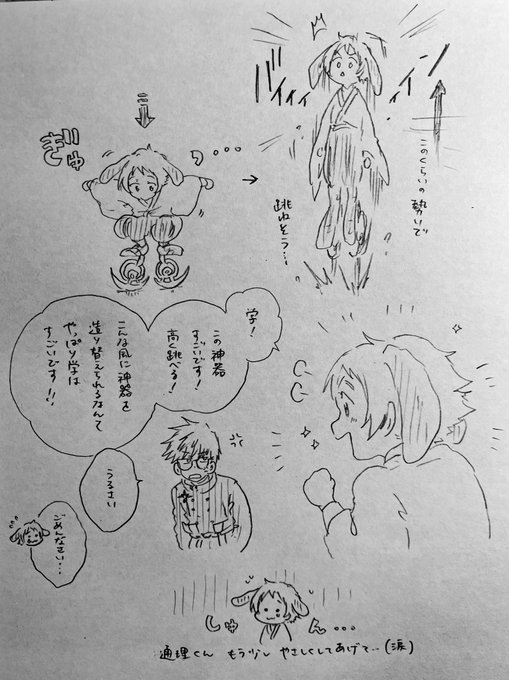 ぎゅ
っ...
バイィィィィーン
このくらいの勢いで
跳ねそう...
学!
この神器
すごいです!
高く跳べる!
こんな風に神器を
造り替えられるなんて
やっぱり学は
すごいです!!
うるさい
ごめんなさい...
しゅん...
通理くん もう少し やさしくしてあげて..(涙)